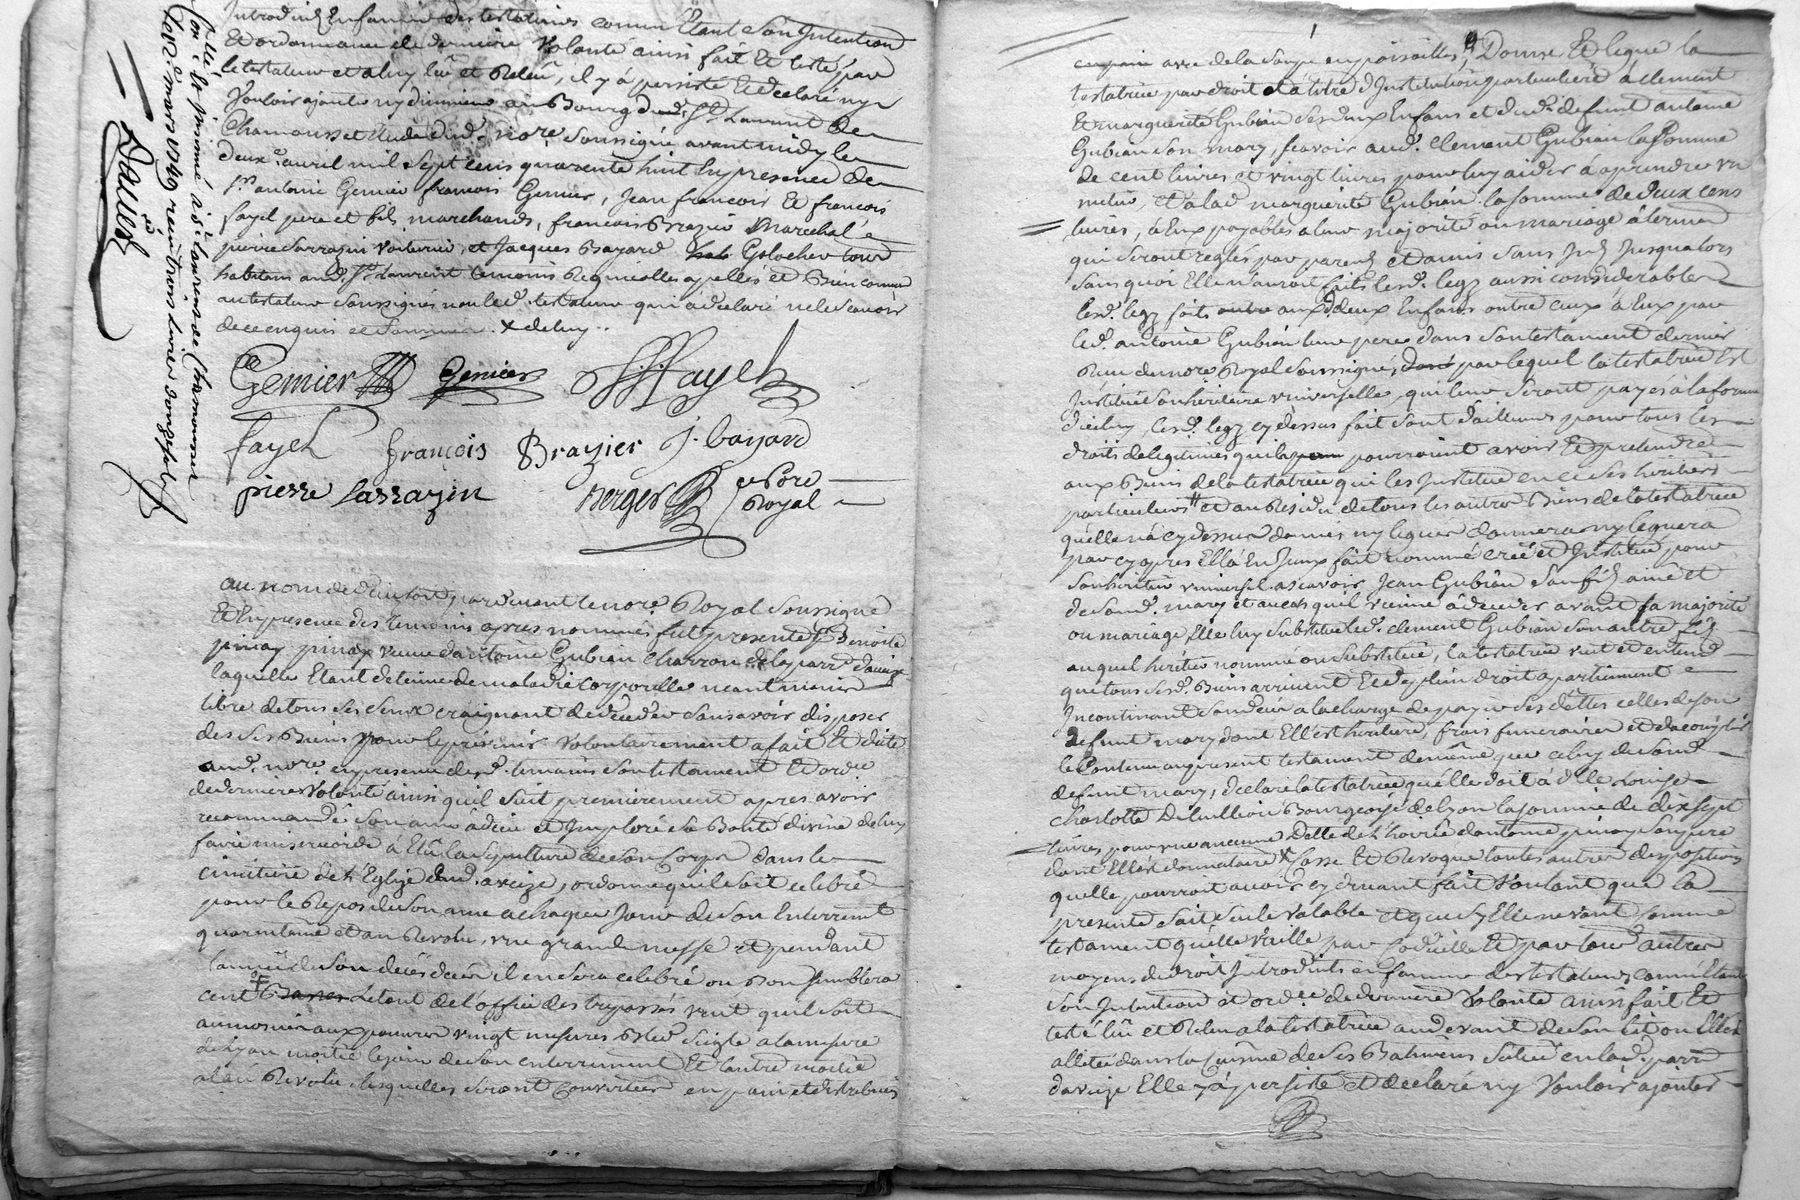 Introduits En faveur des testateurs comm Etant Son Intention
Et ordonnance de derniere Volonté ainsi fait Et testé par
le testateur et a luy lû et Relû, il y à persisté Et declaré ny
Vouloir ajouter ny diminuer au Bourg dud. St. Laurent de
Chamousset Etude dud. nore. Soussigné avant midy le
deux. avril mil Sept cens quarente huit En presence de
Sr. antoine Gemier francois Gemier, Jean francois Et francois
fayel pere et fils marchands, francois Brazier Marechal
pierre Sarrazin Voiturier, et Jacques Bayard tous
habitans aud. St. Laurent temoins Requis apellés et Bien connu
au testateur Soussignés non led. testateur qui a declaré ne le Scavoir
de ce enquis et Sommé. x de luy.
Gemier Gemier Fayel
fayel françois Brazier J. bayard
pierre sarrazin Berger nore
Royal
Collé Con.lé et Insinué à St. Laurent de Chamousset
le 12e mars 1749 reçu trois livres douze sols
au nom de Dieu soit, pardevant le nore. Royal Soussigné
Et En presence des temoins apres nommés fut presente Benoite
pinay veuve d'antoine Gubian Charron de la parr. d'aveize
laquelle Etant detenue de maladie Corporelle neantmoins
libre de tous Ses Sens craignant de deceder Sans avoir disposer
des Ses Biens pour le prevenir Volontairement a fait Et dicté
aud. nore. en presence desd. temoins Son testament Et ordre
de derniere Volonté ainsi quil Suit premierement apres avoir
recommandé Son ame à dieu et Imploré Sa Bonté divine de luy
faire misericorde à Elû la Sepulture de Son Corps dans le
cimitière de l'Eglize dud. aveize, ordonne quil Soit celebré
pour le Repos de Son ame a chaque Jour de Son Enterremt
quarantaine et au Revolu, une grande messe et pendant
l'année de Son decès il en Sera celebré ou Bon Semblera
cent Basses Et tout de l'office des trepassés veut quil Soit
aumosné aux pauvres vingt mesures Bled Seigle a la mesure
de Lyon moitié le jour de Son enterrement Et l'autre moitié
alad. Revolu lesquelles Seront Converties en pain et distribuées
avec de la Soupe en paisailles, Donne Et legue la
testatrice par droit et à titre d'Institution particuliere à clement
Et marguerite Gubian Ses deux Enfans et dud. defunt antoine
Gubian Son mary Scavoir aud. Clement Gubian la Somme
de cent livres et vingt livres pour luy aider à aprendre un
metier, et à lad. marguerite Gubian la Somme de deux cens
livres, à Eux payables a leur majorité ou mariage à termes
qui Seront reglés par parens et amis Sans Int. Jusqu alors
Sans quoi Elle n'auroit faits lesd. legz aussi considerables
lesd. legz faits aux d. deux Enfans outre ceux à Eux par
led. antoine Gubian leur pere dans Son testament dernier
Reçu du nore Royal Soussigné, par lequel la testatrice Est
Instituée Son heritiere universelle, qui leur Seront payés à la forme
d'iceluy, lesd. legz cy dessus fait Sont d'ailleurs pour tous les
droits de legitimes quils pourroient avoir Et pretendre
aux Biens de la testatrice qui les Institue en ce Ses heritiers
particuliers et au Residu de tous les autres Biens de la testatrice
qu'elle n'à cy dessus donnés ny legués donnera ny leguera
par cy apres Ellà En Iceux fait nommé creé et Institué pour
Son heritier universel a Scavoir Jean Gubian Son fils ainé et
de Sond. mary et au cas quil vienne à deceder avant Sa majorité
ou mariage Elle luy Substitue led. clement Gubian Son autre fils
auquel heritier nommé ou Substitué, la testatrice veut et entend
que tous Sesd. Biens arrivent Et de plein droit apartiennent
Incontinant Son deces a la charge de payer Ses dettes celles de Son
defunt mary dont Ell'est heritiere, frais funeraires et d'acomplir
le Contenu au present testament de même que celuy de Sond.
defunt mary, declare la testatrice quelle doit à dlle. Louise
Charlotte Bourgeoise de Lyon la Somme de dix Sept
livres pour une ancienne Dette de l'hoirie d'antoine pinay Son pere
dont Ell'est donnataire x Casse Et Revoque toutes autres dispositions
quelle pourroit avoir cy devant fait Voulant que la
presente Soit Seule Valable et que Sy Elle ne vaut comme
testament qu'elle vaille par Codicille Et par tous autres
moyens de droit Introduits en faveur des testateurs comm Etant
Son Intention et ordre de derniere Volonté ainsi fait Et
testé lû et Relu a la testatrice au devant de Son Lit ou Ell'est
alitée dans la Cuisine de Ses Batimens Scitué en lad. parr.
d'aveize Elle y à persisté et declaré ny Vouloir ajouter